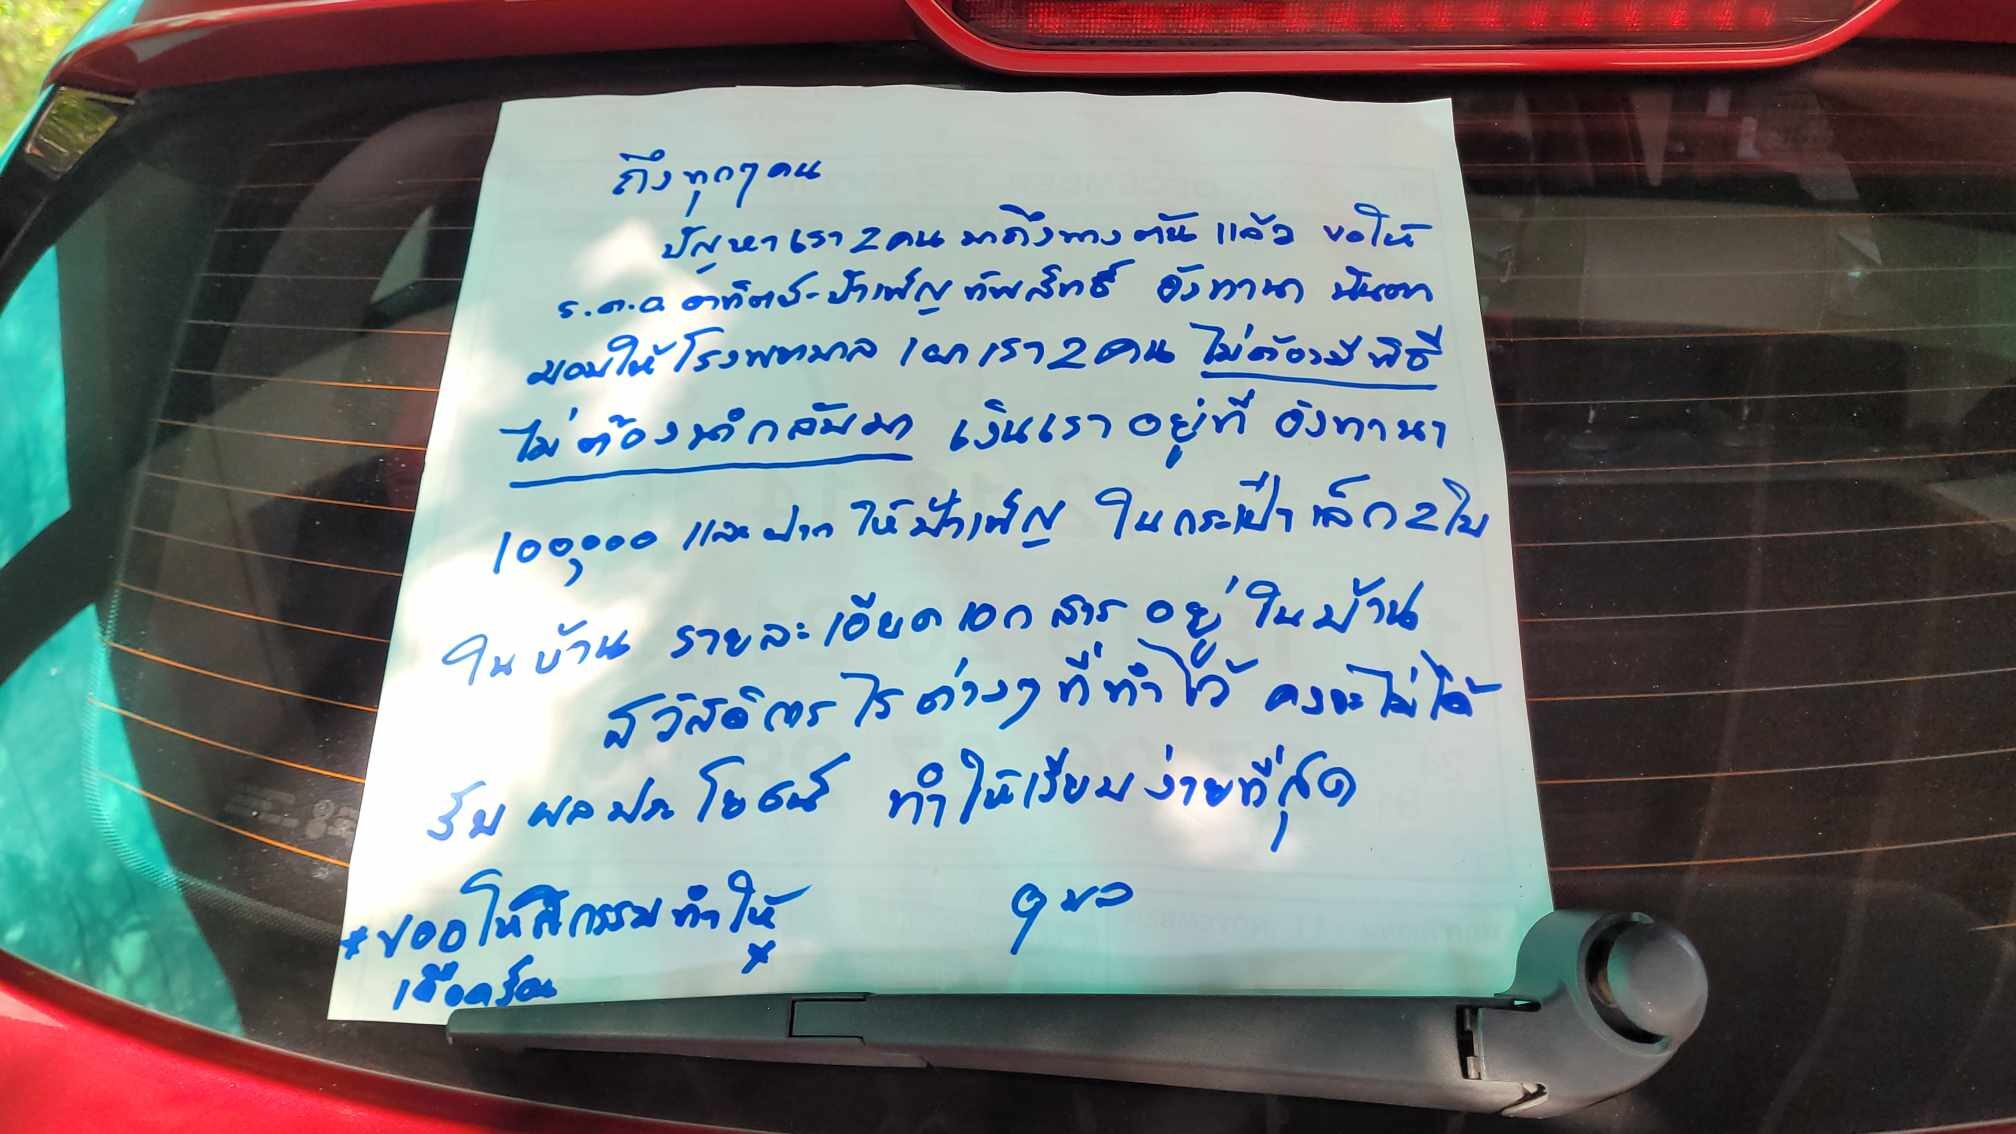 ถึงทุกๆคน
ปัญหาเรา 2 คน มาถึงทางตันแล้ว ขอให้
ร.ต.อ อาทิตย์-ป้าเพ็ญ ทัพสิทธิ์ อังทานา นันตา
มอบให้โรงพยาบาล เผาเรา 2 คน ไม่ต้องมีพิธี
ไม่ต้องนำกลับมา เงินเราอยู่ที่ อังทานา
100,000 และฝากให้ป้าเพ็ญ ในกระเป๋าเล็ก 2 ใบ
ในบ้าน รายละเอียดเอกสารอยู่ในบ้าน
สวัสดิการไรต่างๆที่ทำไว้ คงจะไม่ได้
รับผลประโยชน์ ทำให้เรียบง่ายที่สุด
*ขอให้สิกรรมทำให้*
เดือดร้อน